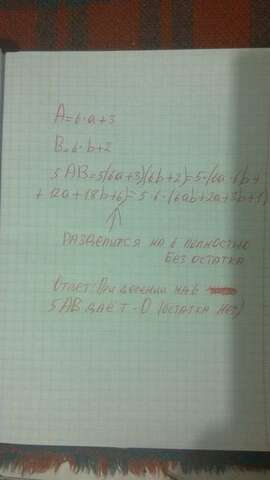 A=6·a+3
B=6·b+2
5AB=5(6a+3)(6b+2)=5·(6a·6b+
+12a+18b+6)=5·6·(6ab+2a+3b+1)
РАЗДЕЛИТСЯ НА 6 ПОЛНОСТЬЮ
БЕЗ ОСТАТКА
ОТВЕТ: ПРИ ДЕЛЕНИИ НА 6
5AB ДАЁТ - 0 (ОСТАТКА НЕТ)